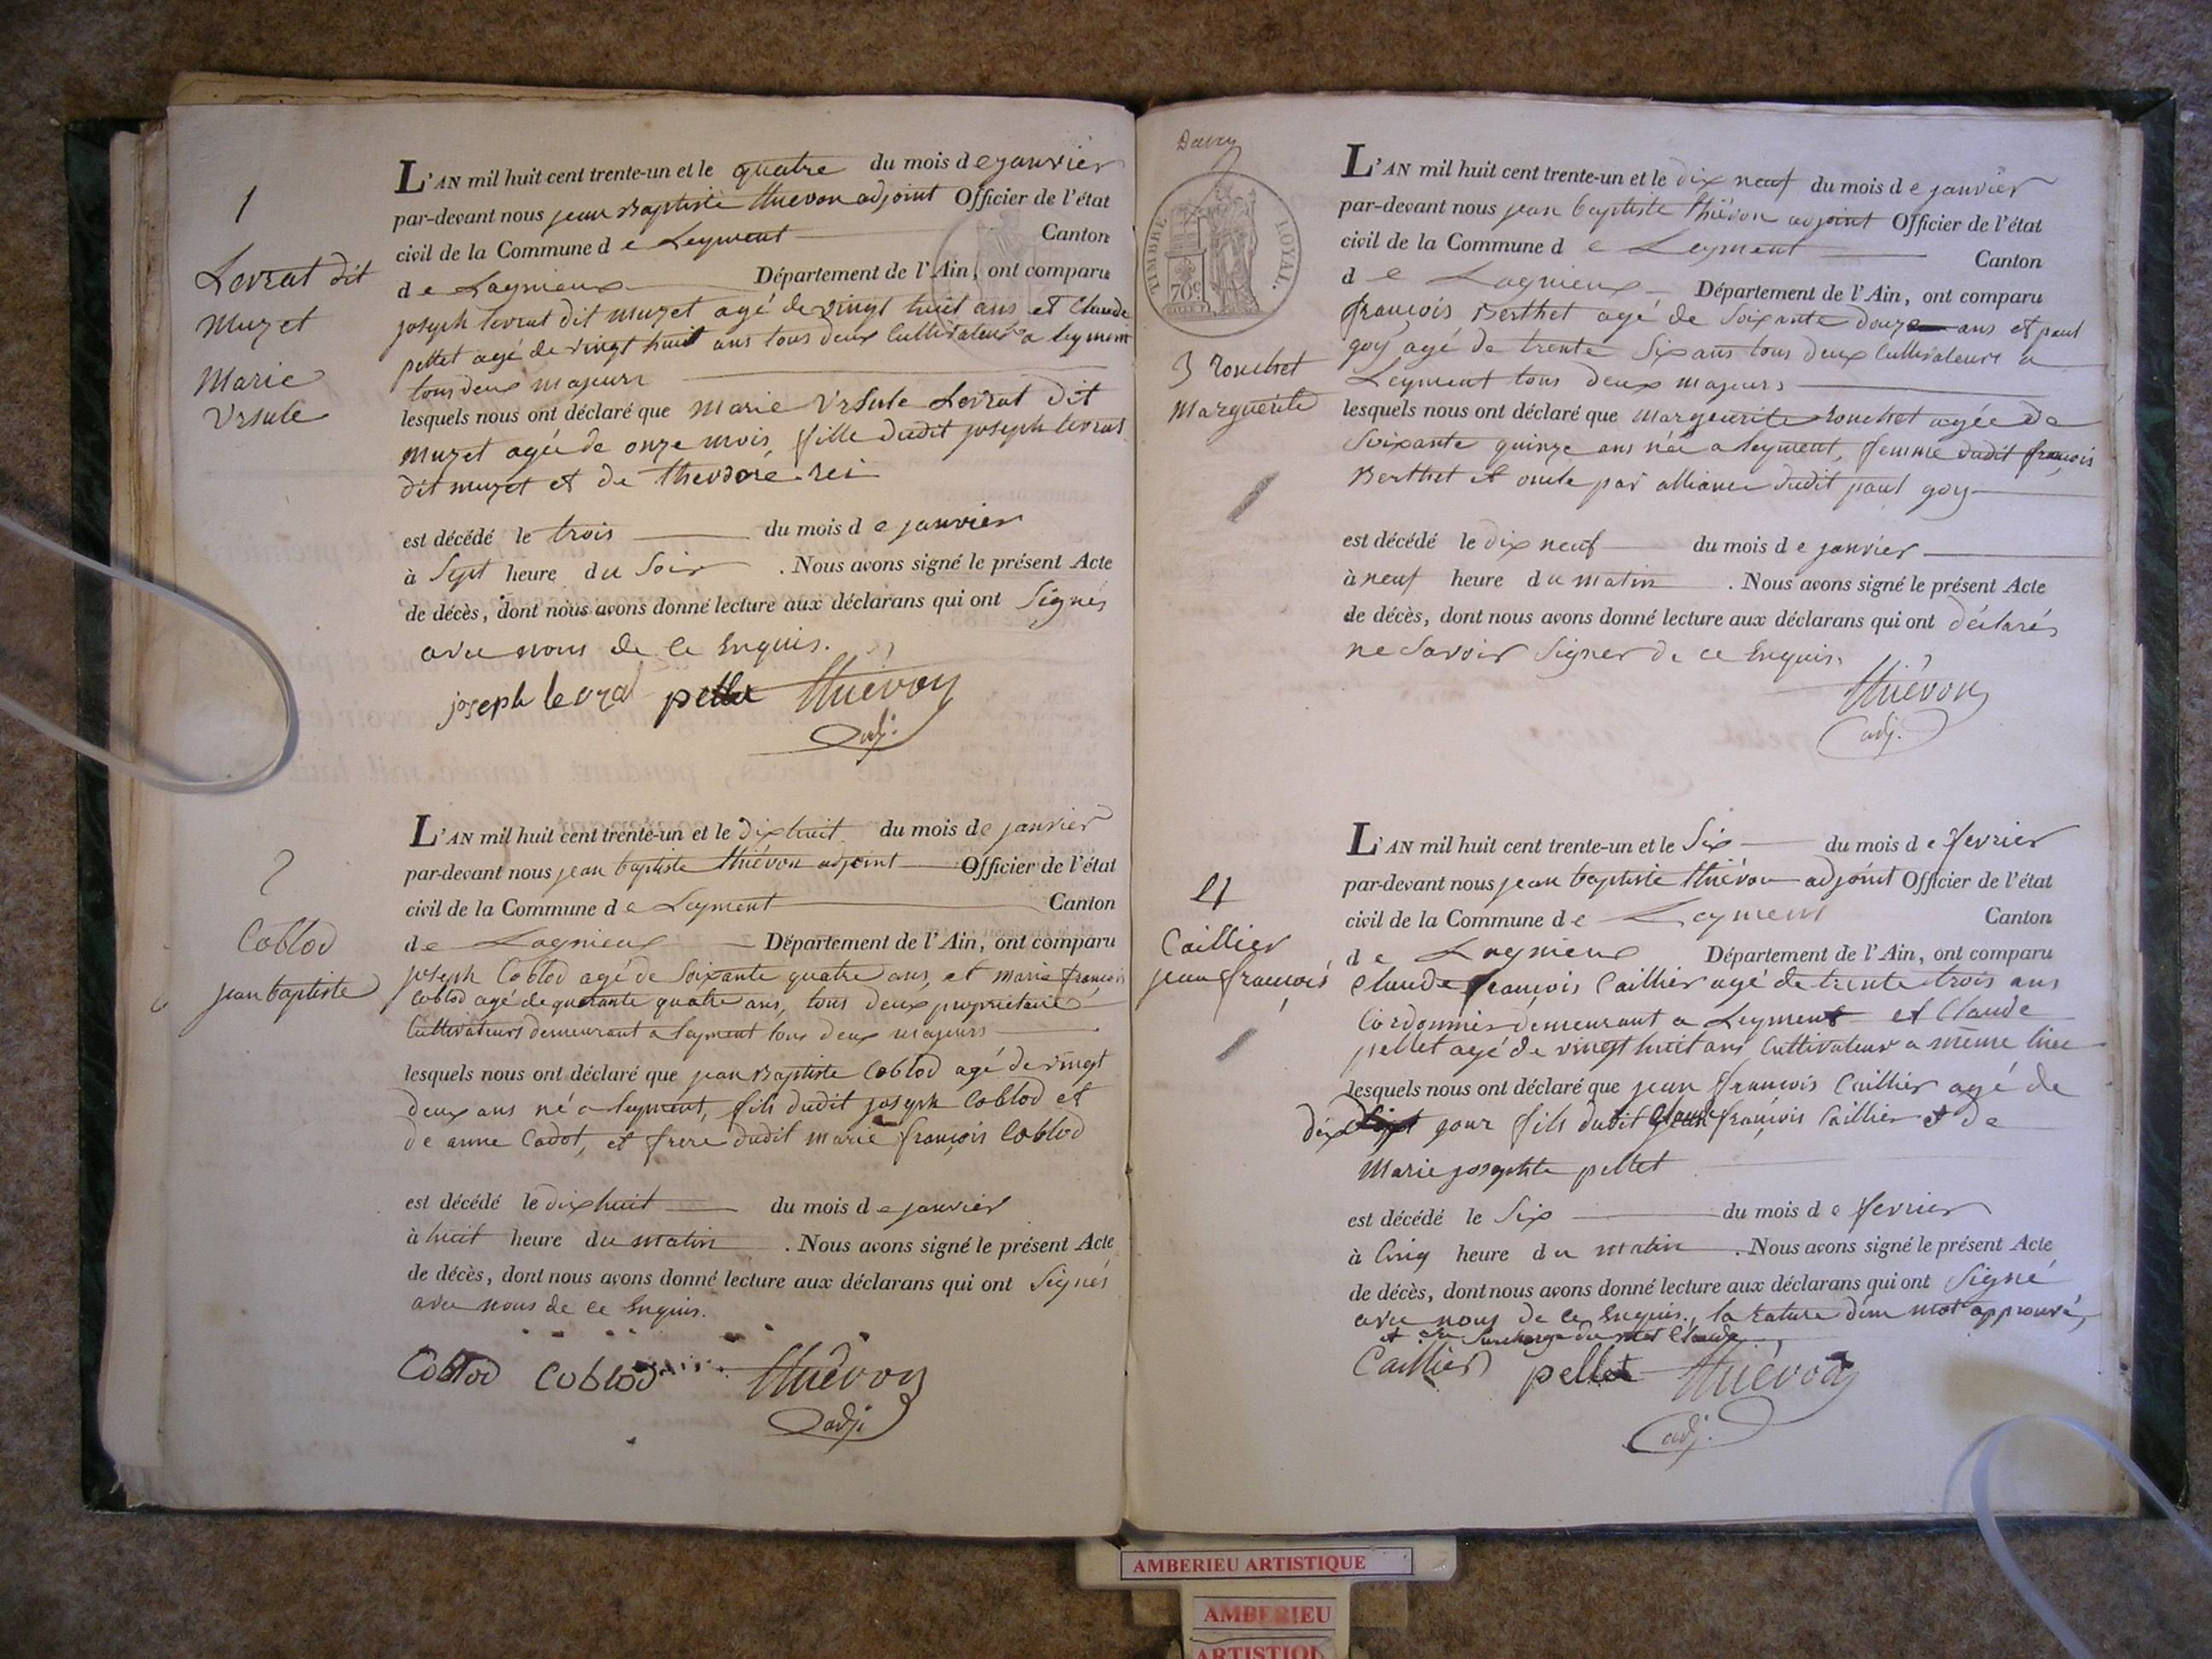 1
Levrat dit
Muzet
Marie
Ursule
L'AN mil huit cent trente-un et le quatre du mois de janvier
par-devant nous jean Baptiste thievon adjoint Officier de l'état
civil de la Commune de Leyment Canton
de Lagnieux Département de l'Ain, ont comparu
joseph levrat dit muzet agé de vingt huit ans et Claude
pellet agé de vingt huit ans tous deux Cultivateurs a leyment
tous deux majeurs
lesquels nous ont déclaré que Marie Ursule Levrat dit
Muzet agée de onze mois, fille dudit joseph levrat
dit muzet et de theodore rei
est décédé le trois du mois de janvier
à Sept heure du Soir . Nous avons signé le présent Acte
de décès, dont nous avons donné lecture aux déclarans qui ont Signés
avec nous de ce Enquis.
joseph levrat pellet thiévon
adj.
2
Coblod
jean baptiste
L'AN mil huit cent trente-un et le dix huit du mois de janvier
par-devant nous jean baptiste thiévon adjoint Officier de l'état
civil de la Commune de Leyment Canton
de Lagnieux Département de l'Ain, ont comparu
joseph Coblod agé de Soixante quatre ans, et marie françois
Coblod agé de quarante quatre ans, tous deux propriétaire
Cultivateurs demeurant a leyment tous deux majeurs
lesquels nous ont déclaré que jean Baptiste Coblod agé de vingt
deux ans né a leyment, fils dudit joseph Coblod et
de anne Cadot, et frere dudit marie françois Coblod
est décédé le dix huit du mois de janvier
à huit heure du matin . Nous avons signé le présent Acte
de décès, dont nous avons donné lecture aux déclarans qui ont Signés
avec nous de ce Enquis.
Coblod Coblod thiévon
adj
TIMBRE ROYAL.
70c
3 rouchet
Marguerite
L'AN mil huit cent trente-un et le dix neuf du mois de janvier
par-devant nous jean baptiste thiévon adjoint Officier de l'état
civil de la Commune de Leyment Canton
de Lagnieux Département de l'Ain, ont comparu
françois Berthet agé de Soixante douze ans et paul
goy agé de trente Six ans tous deux Cultivateurs a
Leyment tous deux majeurs
lesquels nous ont déclaré que marguerite rouchet agée de
Soixante quinze ans née a leyment, femme dudit françois
Berthet et oncle par alliance dudit paul goy
est décédé le dix neuf du mois de janvier
à neuf heure du matin . Nous avons signé le présent Acte
de décès, dont nous avons donné lecture aux déclarans qui ont déclarés
ne Savoir Signer de ce Enquis.
thiévon
adj.
4
Caillier
jean françois
L'AN mil huit cent trente-un et le Six du mois de fevrier
par-devant nous jean baptiste thiévon adjoint Officier de l'état
civil de la Commune de Leyment Canton
de Lagnieux Département de l'Ain, ont comparu
Claude françois Caillier agé de trente trois ans
Cordonnier demeurant a Leyment et Claude
pellet agé de vingt huit ans Cultivateur a même lieu
lesquels nous ont déclaré que jean françois Caillier agé de
dix jour fils dudit Claude françois Caillier et de
Marie josephte pellet
est décédé le Six du mois de fevrier
à Cinq heure du matin . Nous avons signé le présent Acte
de décès, dont nous avons donné lecture aux déclarans qui ont Signé
avec nous de ce Enquis., la rature d'un mot approuvé,
et la Surcharge du mot Claude
Caillier pellet thiévon
adj.
AMBERIEU ARTISTIQUE
AMBERIEU
ARTISTIQU